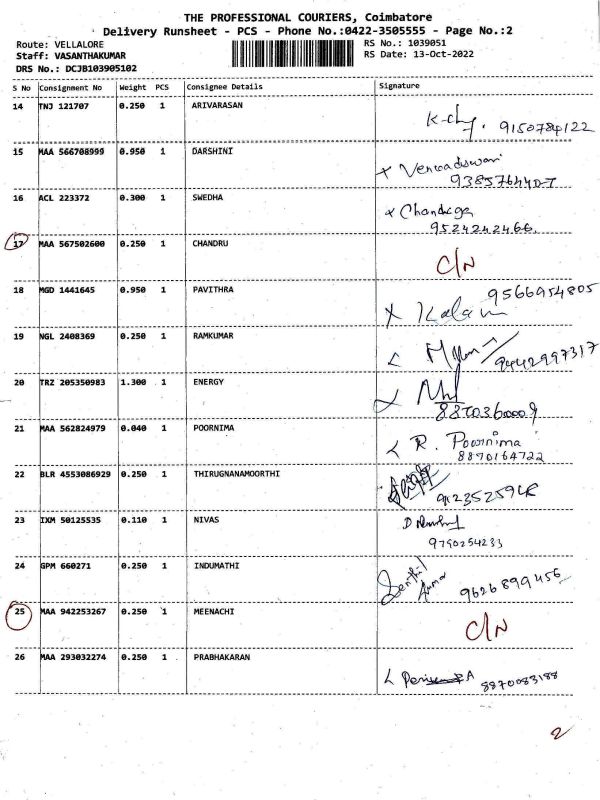 THE PROFESSIONAL COURIERS, Coimbatore
Delivery Runsheet - PCS - Phone No.:0422-3505555 - Page No.:2
Route: VELLALORE
RS No.: 1039051
Staff: VASANTHAKUMAR
RS Date: 13-Oct-2022
DRS No.: DCJB103905102
S No Consignment No Weight PCS Consignee Details Signature
14 TNJ 121707 0.250 1 ARIVARASAN
9150784122
15 MAA 566708999 0.950 1 DARSHINI
16 ACL 223372 0.300 1 SWEDHA
9524242466.
17 MAA 567502600 0.250 1 CHANDRU
C/N
9566954805
18 MGD 1441645 0.950 1 PAVITHRA
19 NGL 2408369 0.250 1 RAMKUMAR
9442997317
20 TRZ 205350983 1.300 1 ENERGY
21 MAA 562824979 0.040 1 POORNIMA
R. Poornima
8870164722
22 BLR 4553086929 0.250 1 THIRUGNANAMOORTHI
23 IXM 50125535 0.110 1 NIVAS
9790254233
24 GPM 660271 0.250 1 INDUMATHI
9626899456
25 MAA 942253267 0.250 1 MEENACHI
C/N
26 MAA 293032274 0.250 1 PRABHAKARAN
8870083188
2